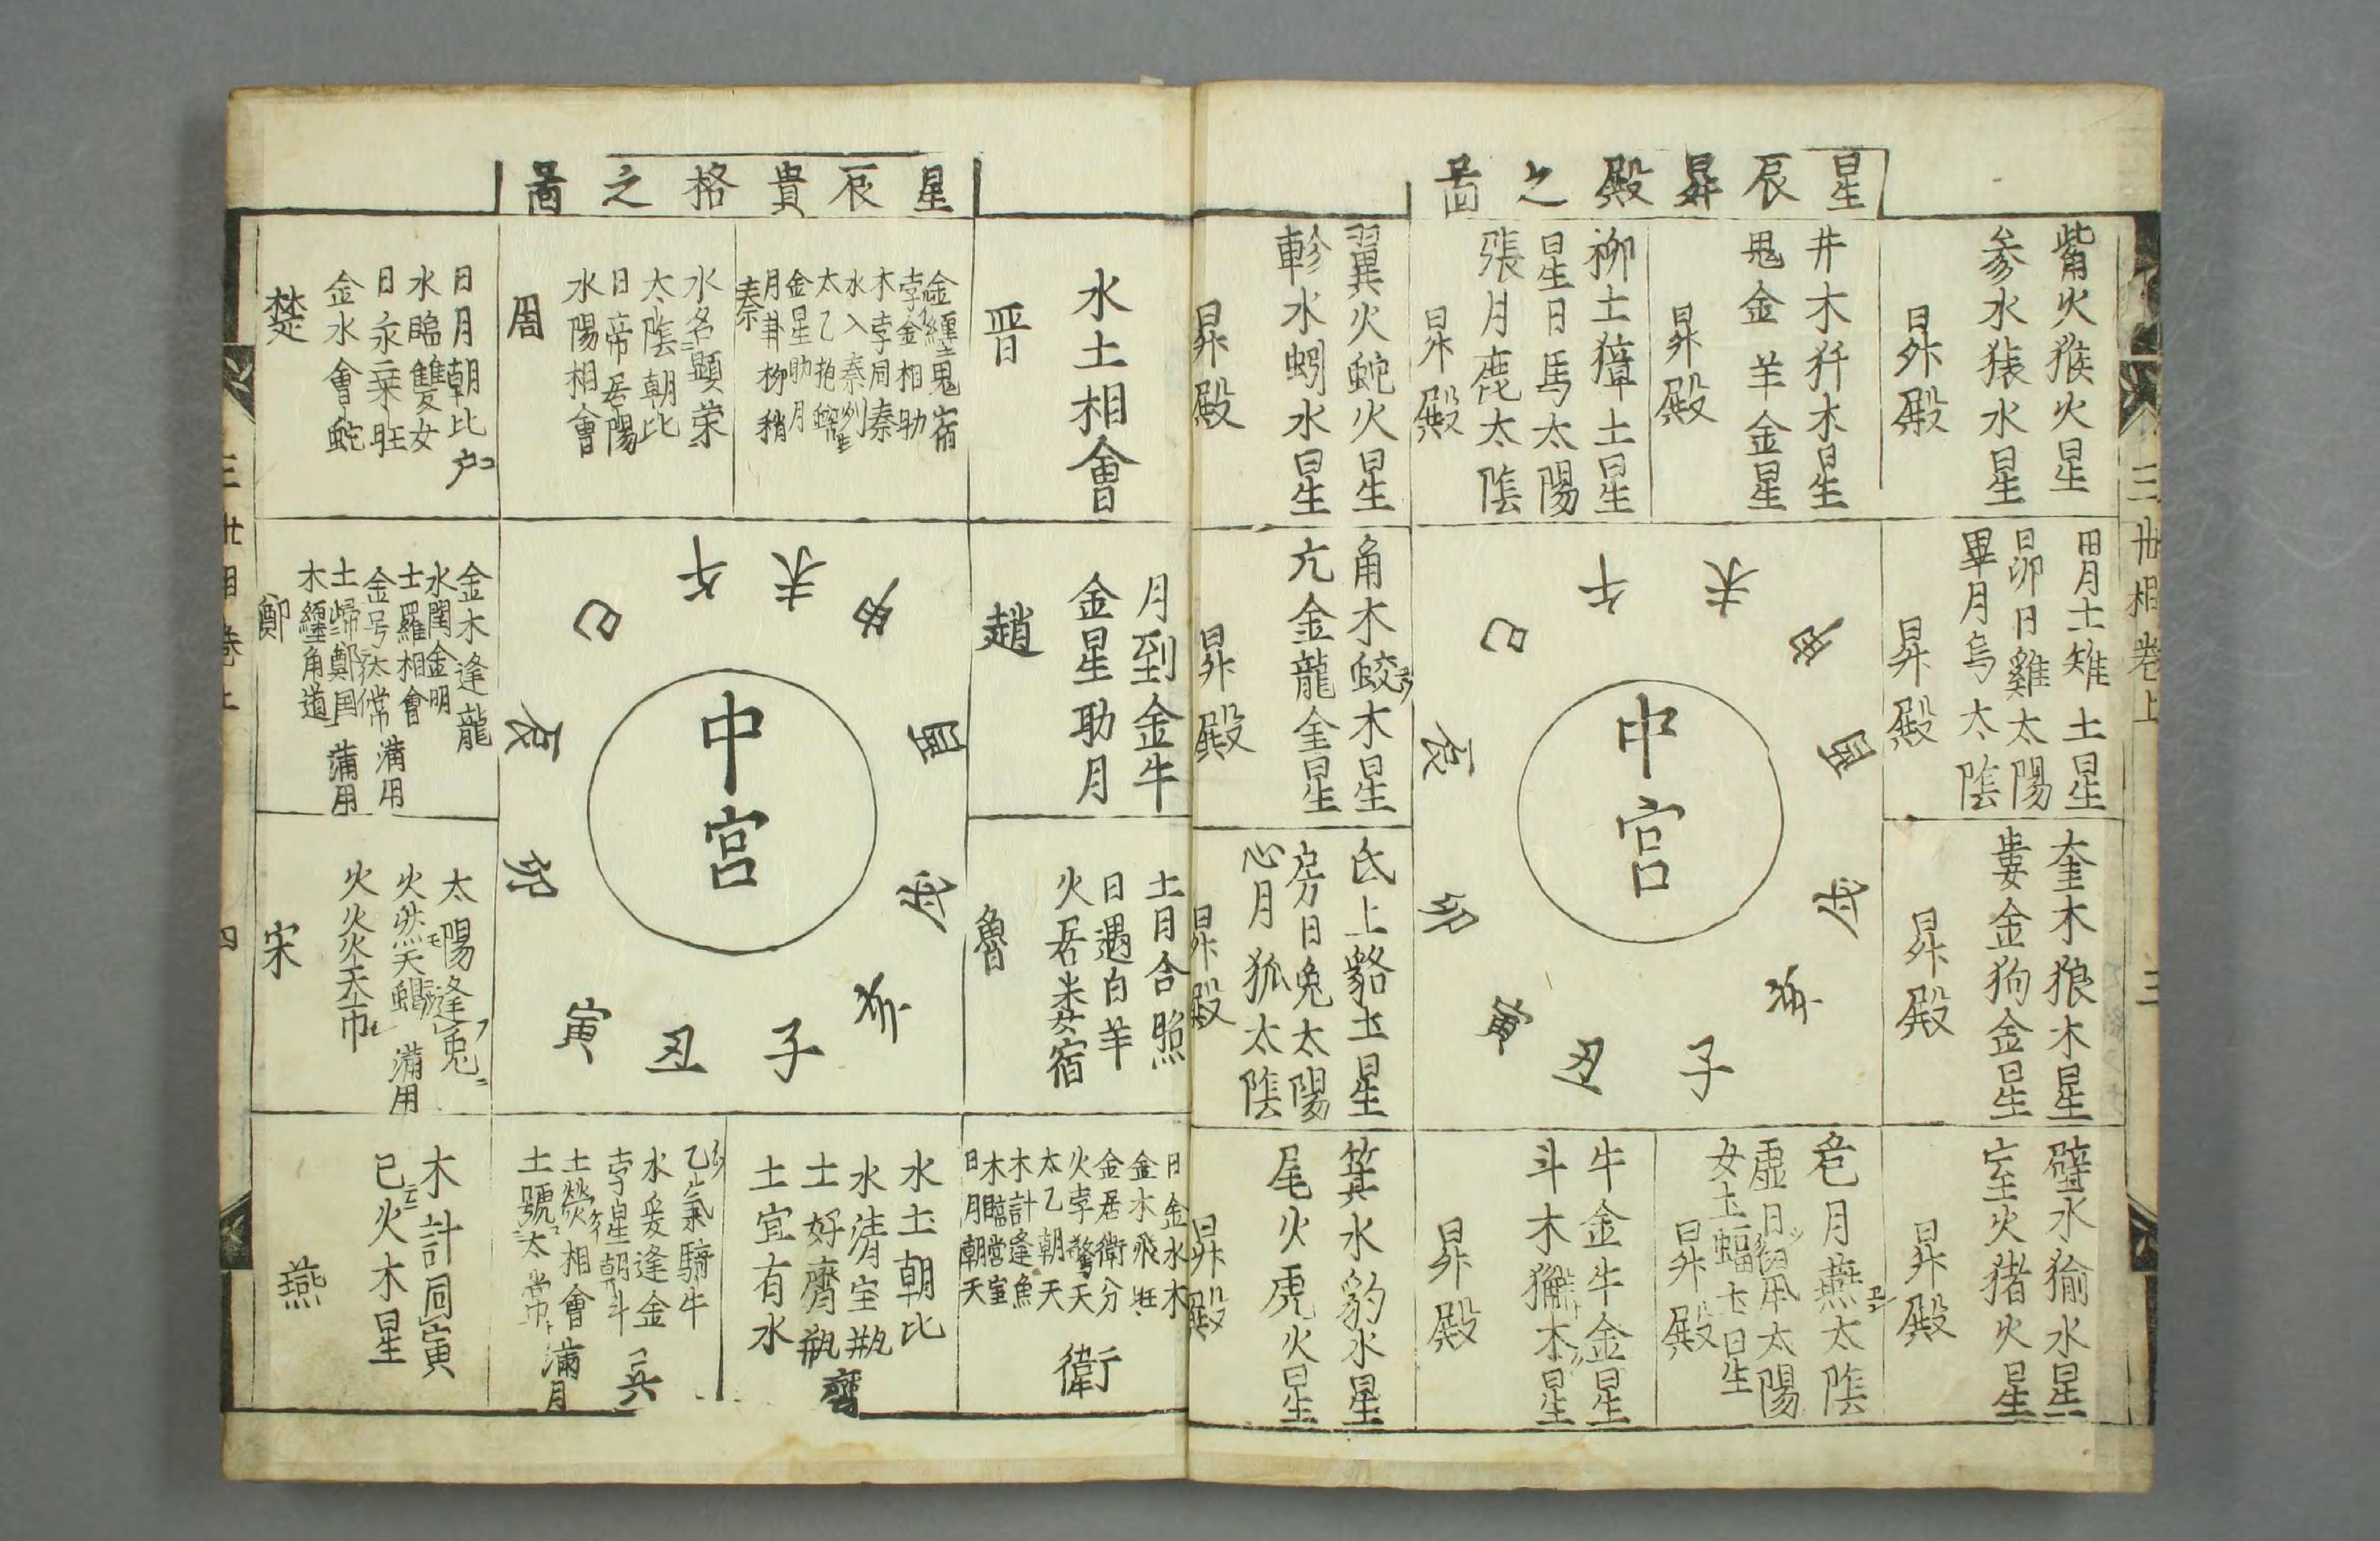 星辰昇殿之啚
觜火猴火星
参水猿水星
昇殿
井木犴木星
鬼金羊金星
昇殿
柳土獐土星
星日馬太陽
張月鹿太陰
昇殿
翼火蛇火星
軫水蚓水星
昇殿
胃土雉土星
昴日雞太陽
畢月烏太陰
昇殿
奎木狼木星
婁金狗金星
昇殿
壁水貐水星
室火猪火星
昇殿
危月燕太陰
虚日鼠太陽
女土蝠土星
昇殿
牛金牛金星
斗木獬木星
昇殿
箕水豹水星
尾火虎火星
昇殿
氐土貉土星
房日兔太陽
心月狐太陰
昇殿
角木蛟木星
亢金龍金星
昇殿
中宮
子
丑
寅
卯
辰
巳
午
未
申
酉
戌
亥
三世相卷上
三
星辰貴格之啚
水土相會
晋
金纏鬼宿
孛金相助
木孛同秦
水入秦州
太乙抱蟾
金星助月
月掛柳稍
秦
水名顕荣
太陰朝北
日帝居陽
水陽相會
周
日月朝北戸
水臨雙女
日永乗旺
金水會蛇
楚
月到金牛
金星助月
趙
土月合照
日遇白羊
火居米女宿
魯
日金水木
金木飛
金居衛分
火孛驚天
太乙朝天
木計逢魚
木臨當室
日月朝天
衛
水土朝北
水清宝瓶
土好齊瓶
土宜有水
齊
乙氣騎牛
水爰逢金
孛星朝斗
土熒相會
土號太常
滿月
兵
木計同寅
巳火木星
燕
太陽逢兎
火然天蝎
滿用
火火炎天市
宋
金木逢龍
水閏金明
士羅相會
金号太常滿用
土歸鄭国蒲用
木纏角道
鄭
中宮
子
丑
寅
卯
辰
巳
午
未
申
酉
戌
亥
三世相卷上
四